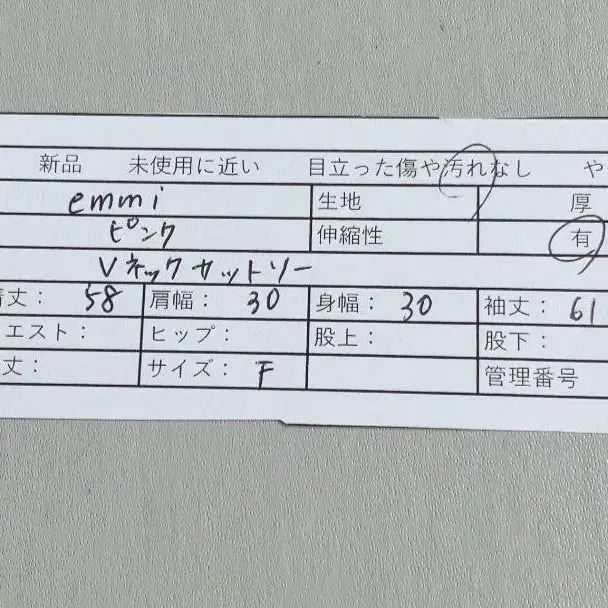 新品 未使用に近い 目立った傷や汚れなし や
emmi 生地 厚
ピンク 伸縮性 有
Vネックカットソー
着丈： 58 肩幅： 30 身幅： 30 袖丈： 61
エスト： ヒップ： 股上： 股下：
丈： サイズ： F 管理番号